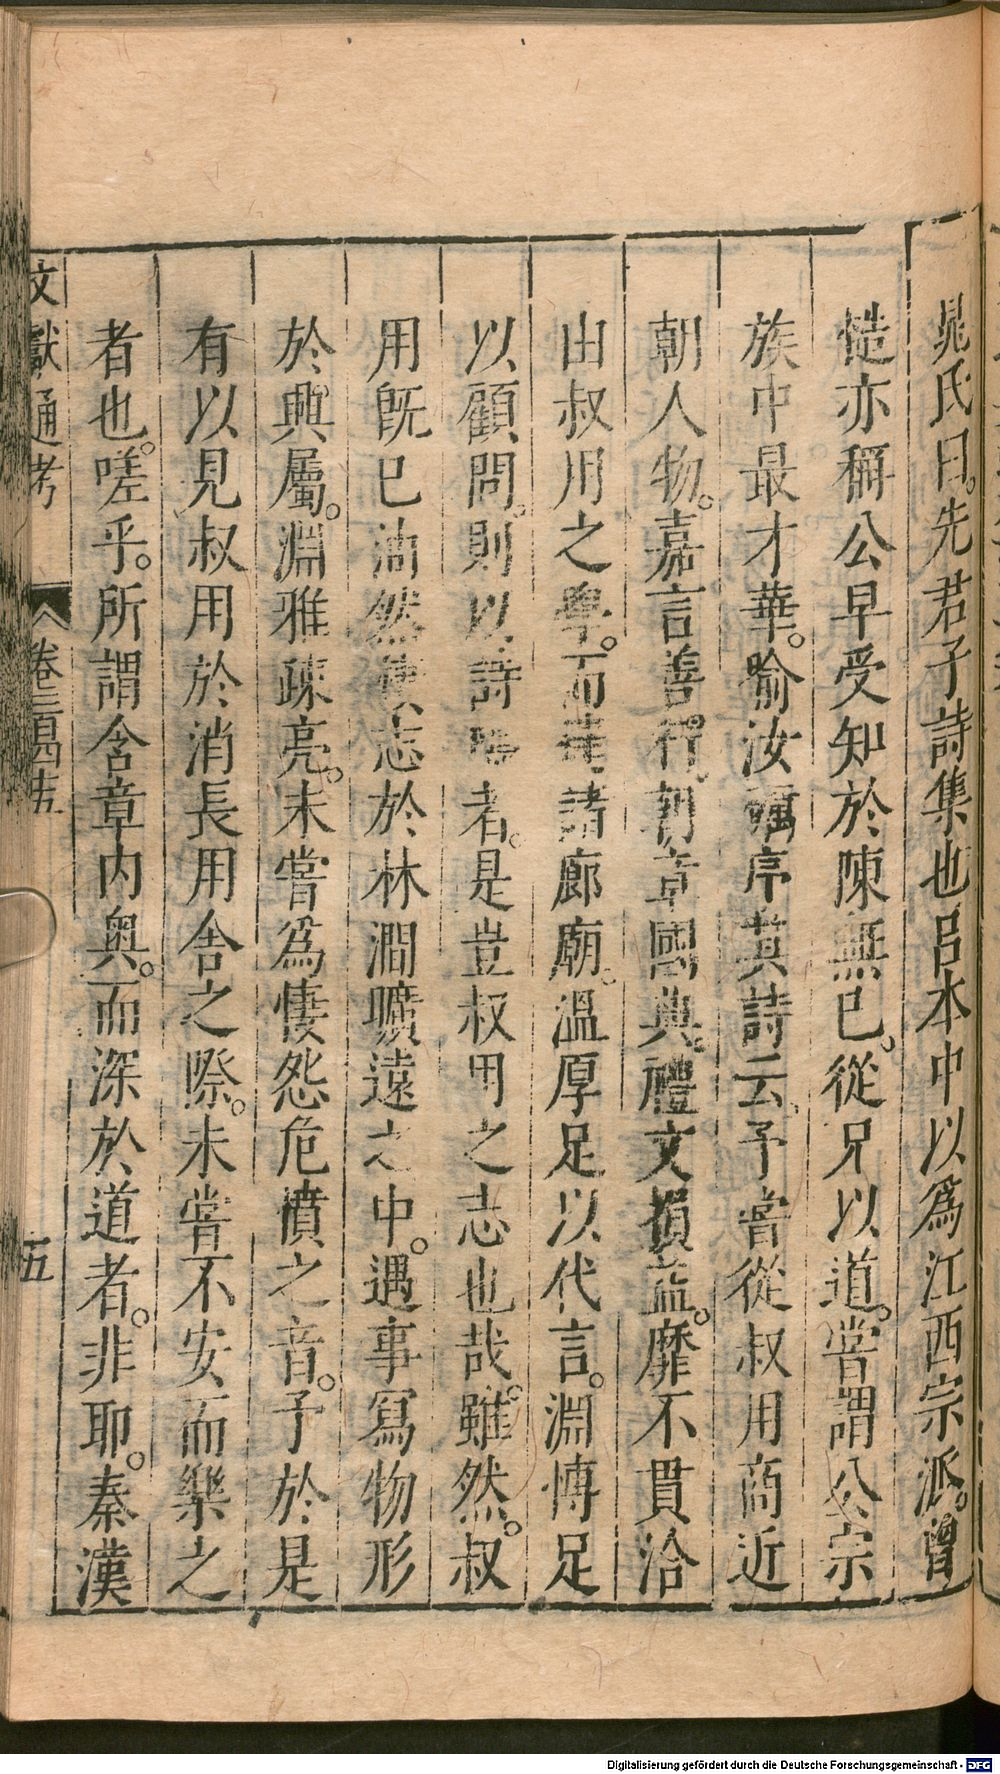 晁氏曰。先君子詩集也呂本中以爲江西宗派。曾
慥亦稱公早受知於陳無已。從兄以道。嘗謂公宗
族中最才華。喻汝礪序其詩云。予嘗從叔用商近
朝人物。嘉言善行。朝章國典。禮文損益。靡不貫洽
由叔用之學。而諸廊廟。溫厚足以代言。淵博足
以顧問。則以詩者。是豈叔用之志也哉。雖然。叔
用旣已油然志於林澗曠遠之中。遇事寫物形
於興屬。淵雅疎亮。未嘗爲悽怨危憤之音。予於是
有以見叔用於消長用舍之際。未嘗不安而樂之
者也。嗟乎。所謂含章内奥。而深於道者。非耶。秦漢
文獻通考 卷二百四十五 五
Digitalisierung gefördert durch die Deutsche Forschungsgemeinschaft - DFG